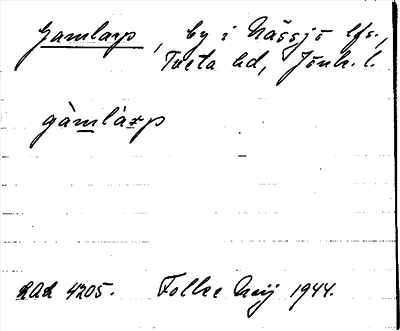 Gamlarp, by i Nässjö lfs.,
Tveta hd, Jönk. l.
gàmlàrp
ULMA 4205. Folke Neij 1944.